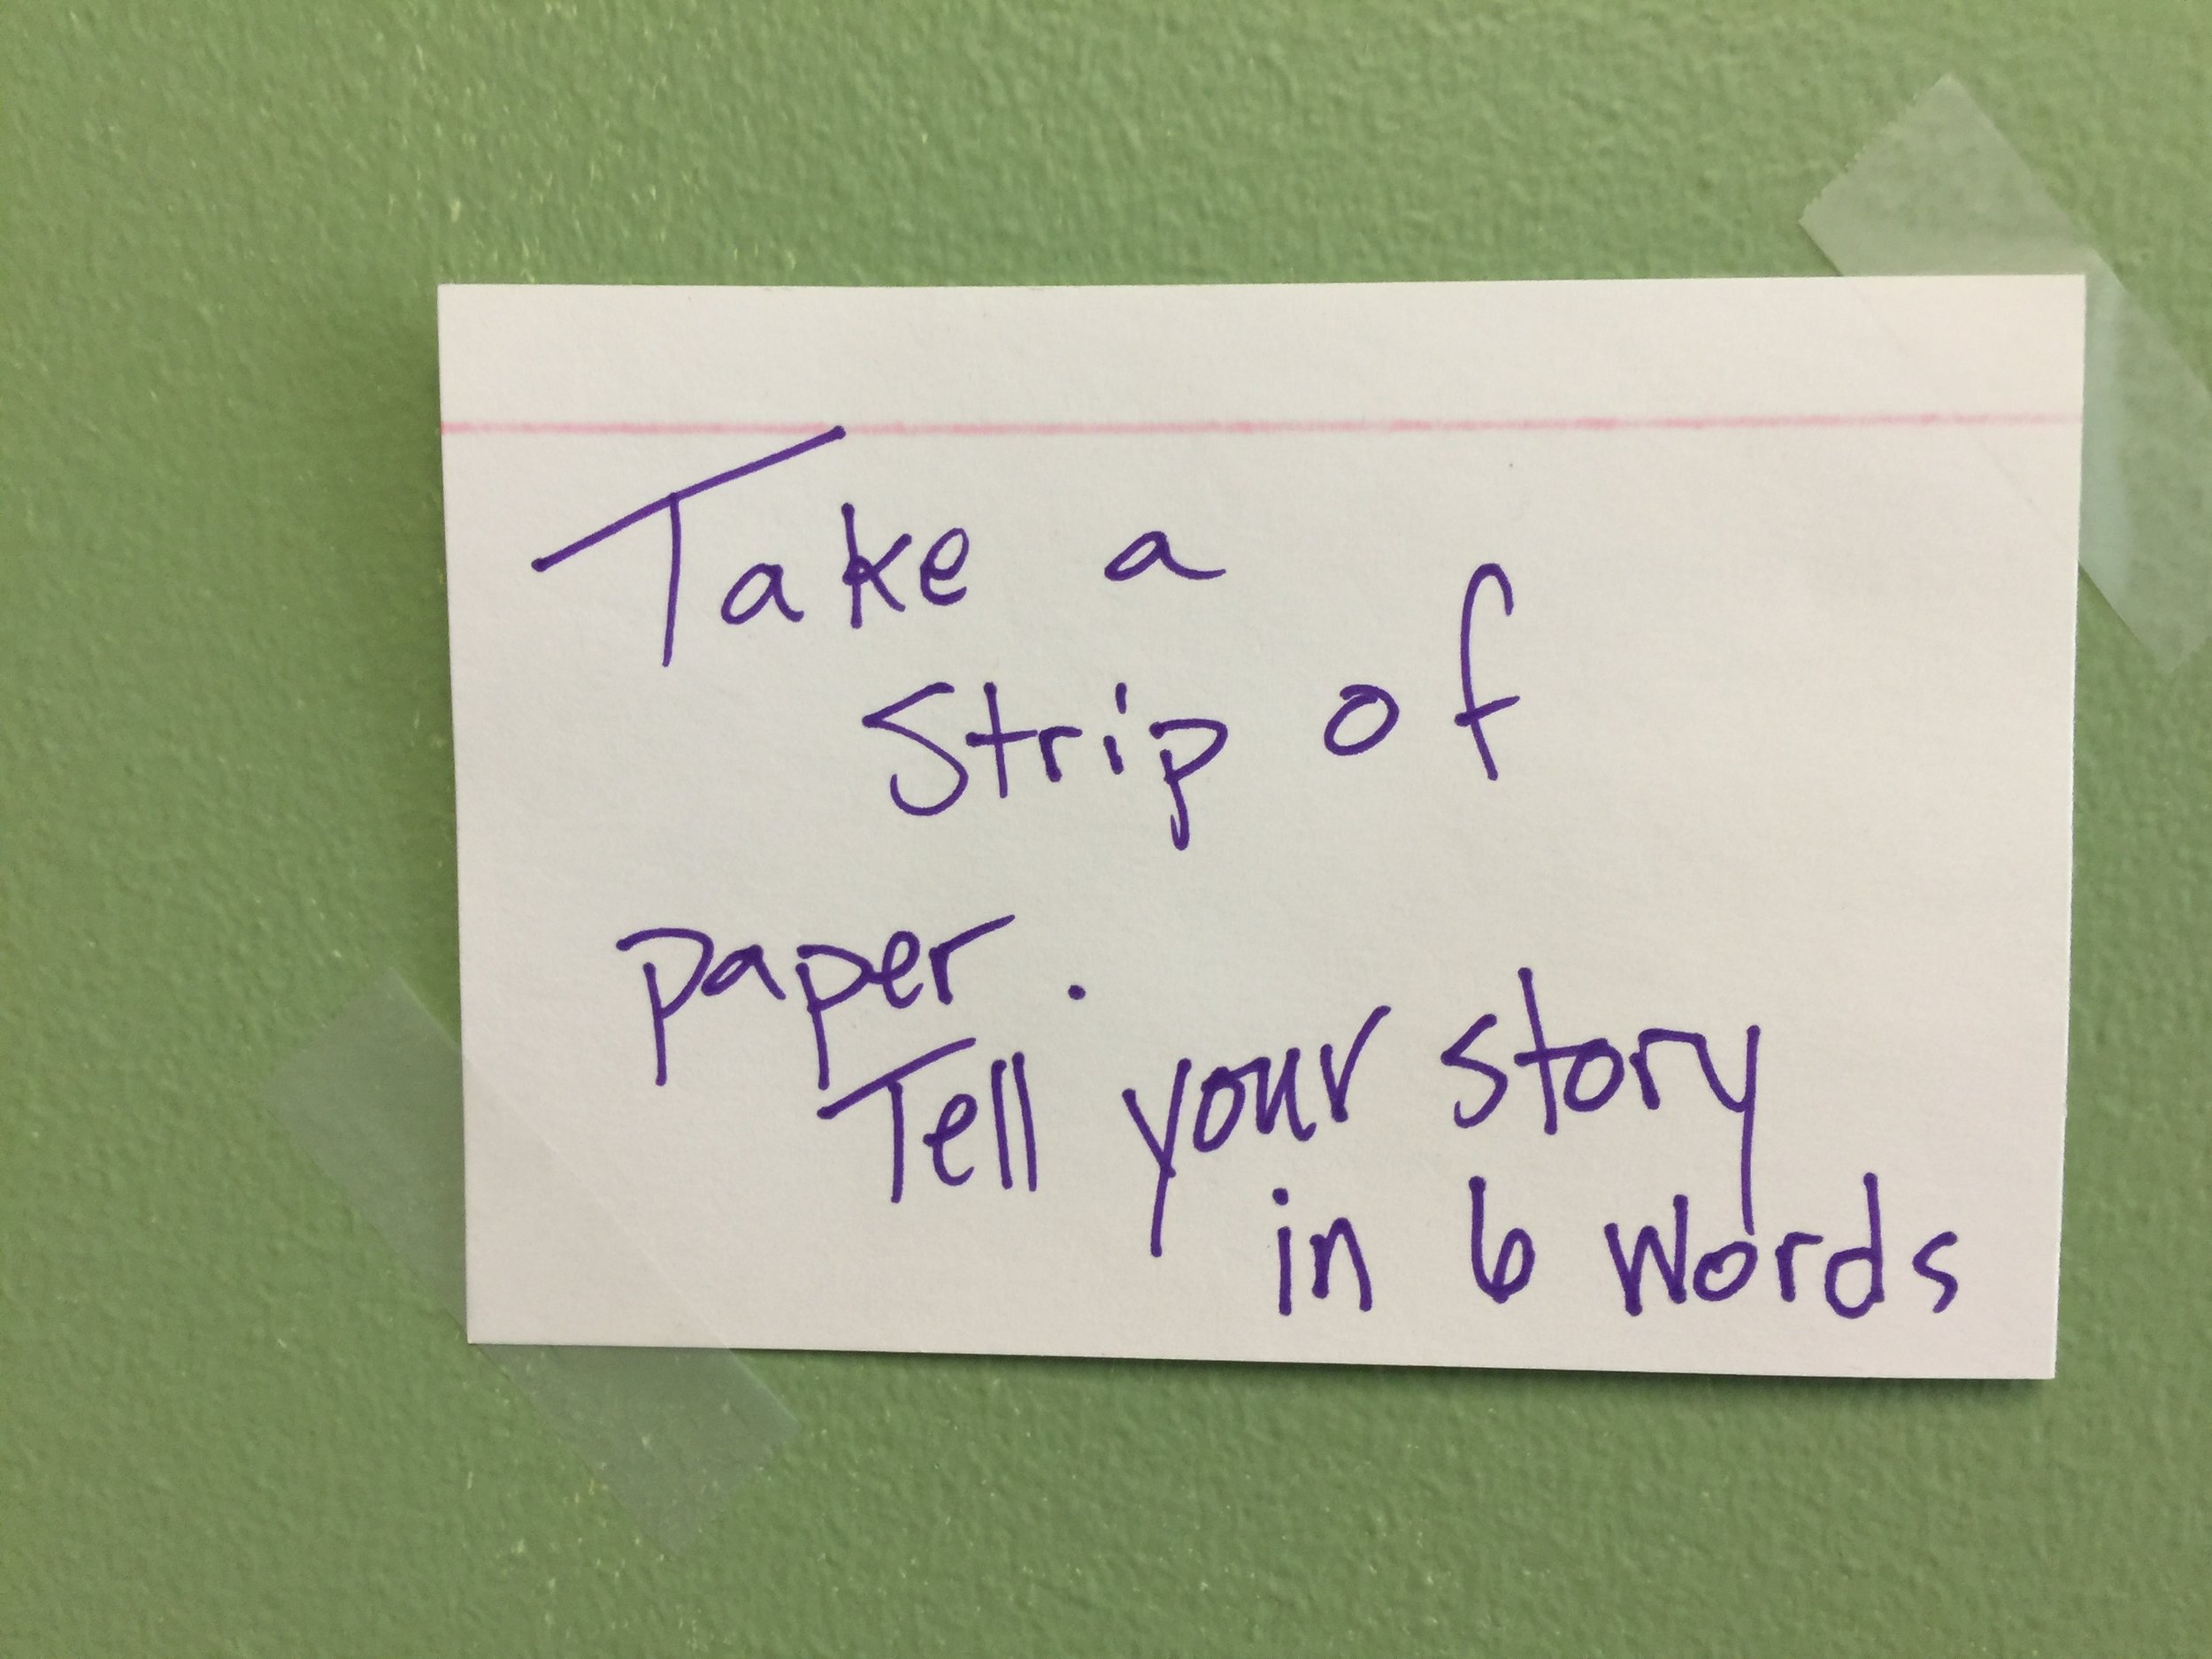 Take a
Strip of
paper.
Tell your story
in 6 words